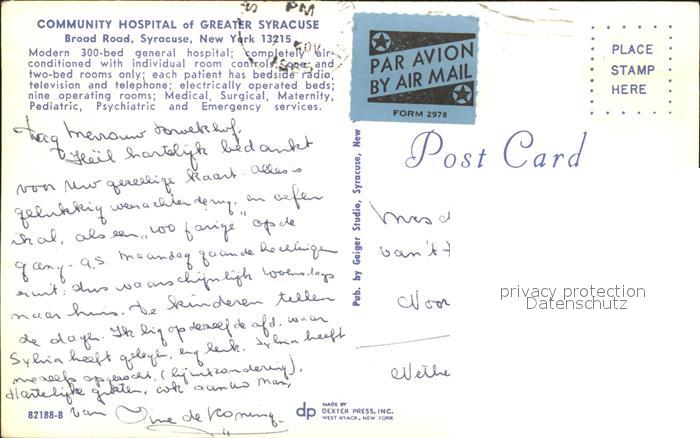 COMMUNITY HOSPITAL of GREATER SYRACUSE
Broad Road, Syracuse, New York 13215
Modern 300-bed general hospital; completely air-
conditioned with individual room controls; one and
two-bed rooms only; each patient has bedside radio,
television and telephone; electrically operated beds;
nine operating rooms; Medical, Surgical, Maternity,
Pediatric, Psychiatric and Emergency services.
Dag Mevrouw
Heel hartelijk bedankt
voor Uw gezellige kaart. Alles is
gelukkig weer achter de rug, en oefen
ik al, als een "100 jarige" op de
gang. a.s. Maandag gaan de hechtingen
eruit, dus waarschijnlijk Woensdag
naar huis. De kinderen tellen
de dagen. Ik lig op dezelfde afd. waar
Sylvia heeft gelegen, erg leuk. Sylvia heeft
me zelfs opgezocht (bij uitzondering).
Hartelijke groeten, ook aan Uw man,
van Ine de Koning.
82188-B
PM
NOV
PAR AVION
BY AIR MAIL
FORM 2978
PLACE
STAMP
HERE
Post Card
Pub. by Geiger Studio, Syracuse, New
Mrs d
van 't
Voor
Nethe
privacy protection
Datenschutz
dp MADE BY
DEXTER PRESS, INC.
WEST NYACK, NEW YORK